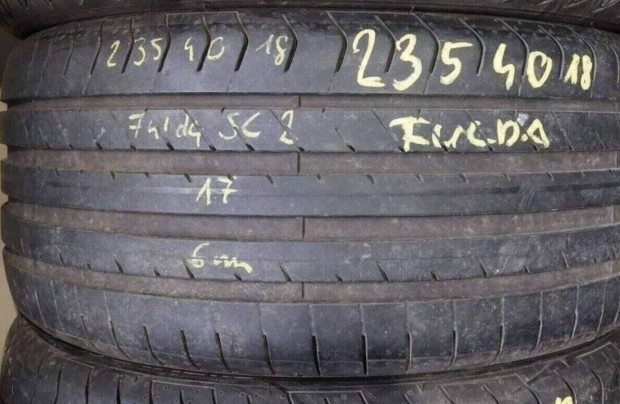 235 40 18
235 40 18
Fulda SC 2
FULDA
17
6mm